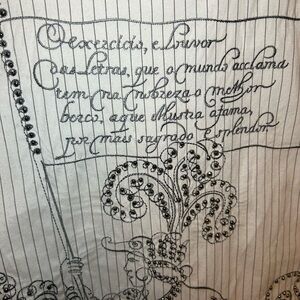 O exercicio, e Louvor
das Letras, que o mundo acclama
tem na nobreza o melhor
berco, a que illustra a fama,
por mais sagrado Esplendor